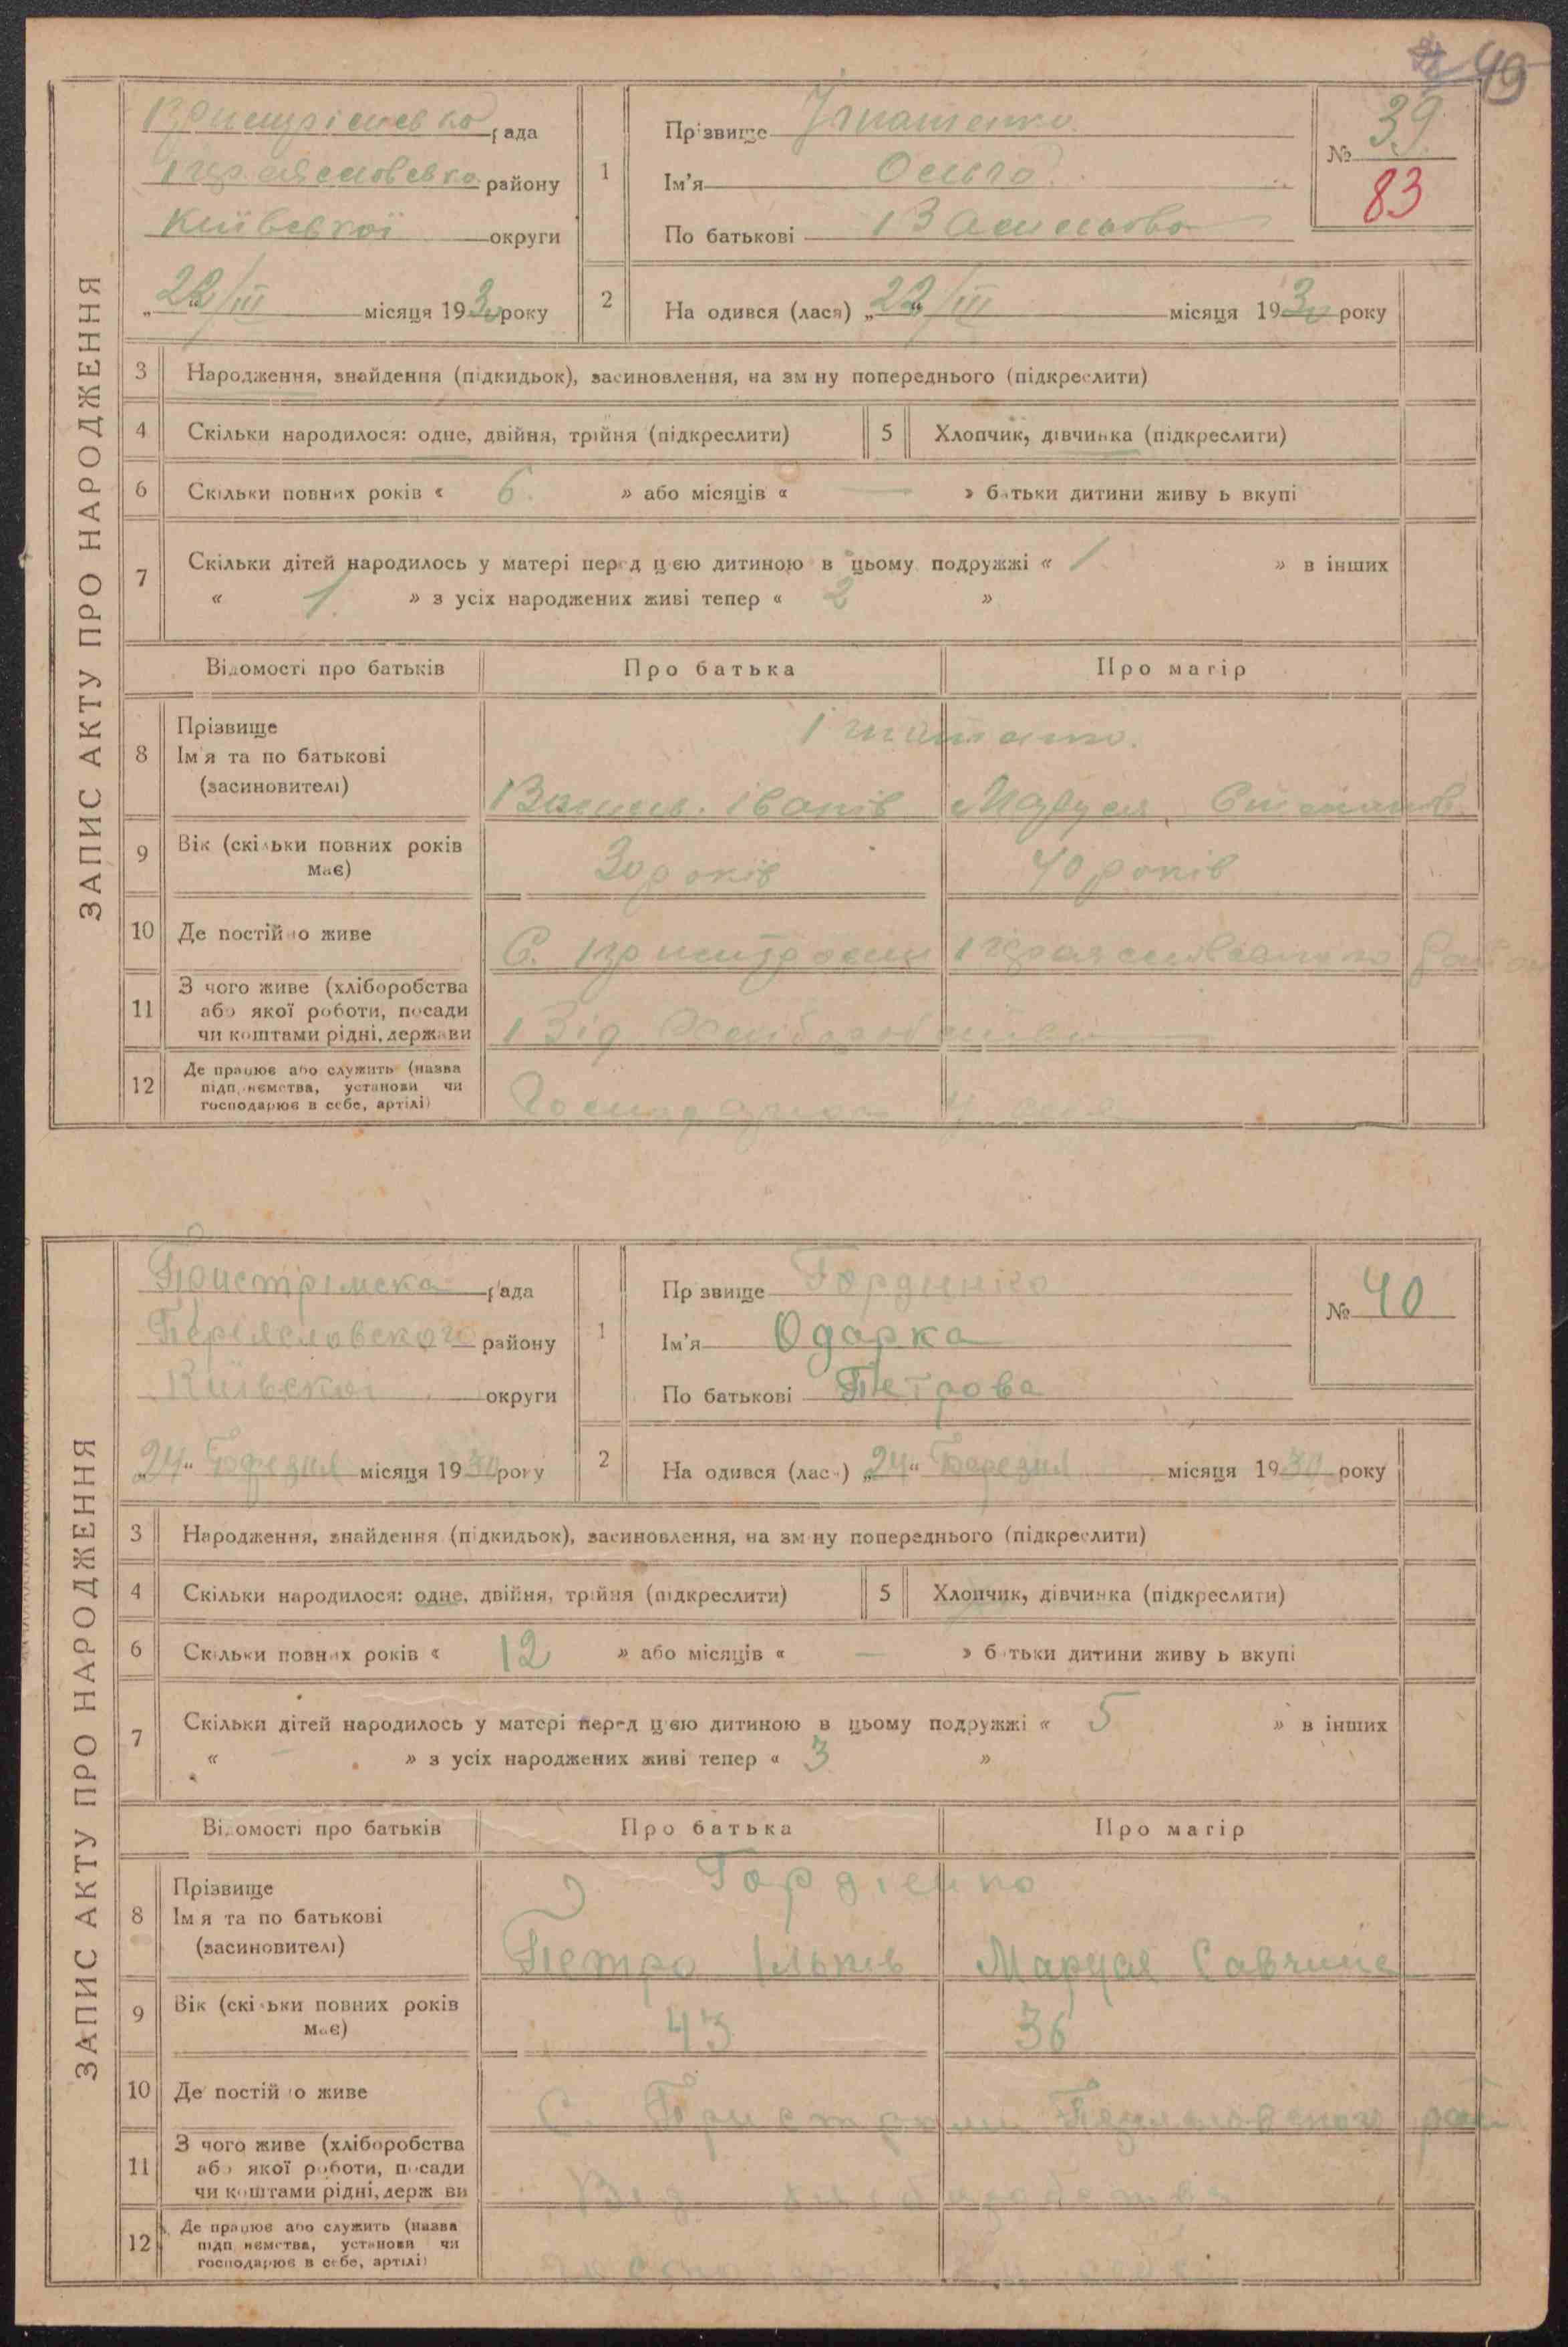 49
ЗАПИС АКТУ ПРО НАРОДЖЕННЯ
рада
району
Київської округи
„22/III місяця 1930 року
1
Прізвище Ігнатенко
Ім'я Ольга
По батькові Васильова
№ 39
83
2
На одився (лася) „22/III місяця 1930 року
3 Народження, знайдення (підкидьок), засиновлення, на зм ну попереднього (підкреслити)
4 Скільки народилося: одне, двійня, трійня (підкреслити)
5 Хлопчик, дівчинка (підкреслити)
6 Скільки повних років « 6. » або місяців « — » батьки дитини живу ь вкупі
7 Скільки дітей народилось у матері перед цією дитиною в цьому подружжі « 1. » в інших
« 1. » з усіх народжених живі тепер « 2 »
Відомості про батьків
Про батька
Про матір
8 Прізвище
Ім'я та по батькові
(засиновителі)
Ігнатенко.
Василь. Іванів
Маруся
9 Вік (скільки повних років
має)
30 років
40 років
10 Де постійно живе
С.
11 З чого живе (хліборобства
або якої роботи, посади
чи коштами рідні, держави
Від Хліборобства
12 Де працює або служить (назва
підприємства, установи чи
господарює в себе, артілі)
ЗАПИС АКТУ ПРО НАРОДЖЕННЯ
рада
Переясловского району
Київскої округи
„24" Березня місяця 1930 року
1
Пр звище Гордіенко
Ім'я Одарка
По батькові Петрова
№ 40
2
На одився (лас ) „24" Березня місяця 1930 року
3 Народження, знайдення (підкидьок), засиновлення, на зм ну попереднього (підкреслити)
4 Скільки народилося: одне, двійня, трійня (підкреслити)
5 Хлопчик, дівчинка (підкреслити)
6 Скільки повних років « 12 » або місяців « — » батьки дитини живу ь вкупі
7 Скільки дітей народилось у матері перед цією дитиною в цьому подружжі « 5 » в інших
« — » з усіх народжених живі тепер « 3 »
Відомості про батьків
Про батька
Про матір
8 Прізвище
Ім'я та по батькові
(засиновителі)
Гордіенко
Петро Ільків
Маруся Савчина
9 Вік (скільки повних років
має)
43
36
10 Де постійно живе
С. Пристроми Переясловского рай
11 З чого живе (хліборобства
або якої роботи, посади
чи коштами рідні, держ ви
Від хліборобства
12 Де працює або служить (назва
підприємства, установи чи
господарює в себе, артілі)